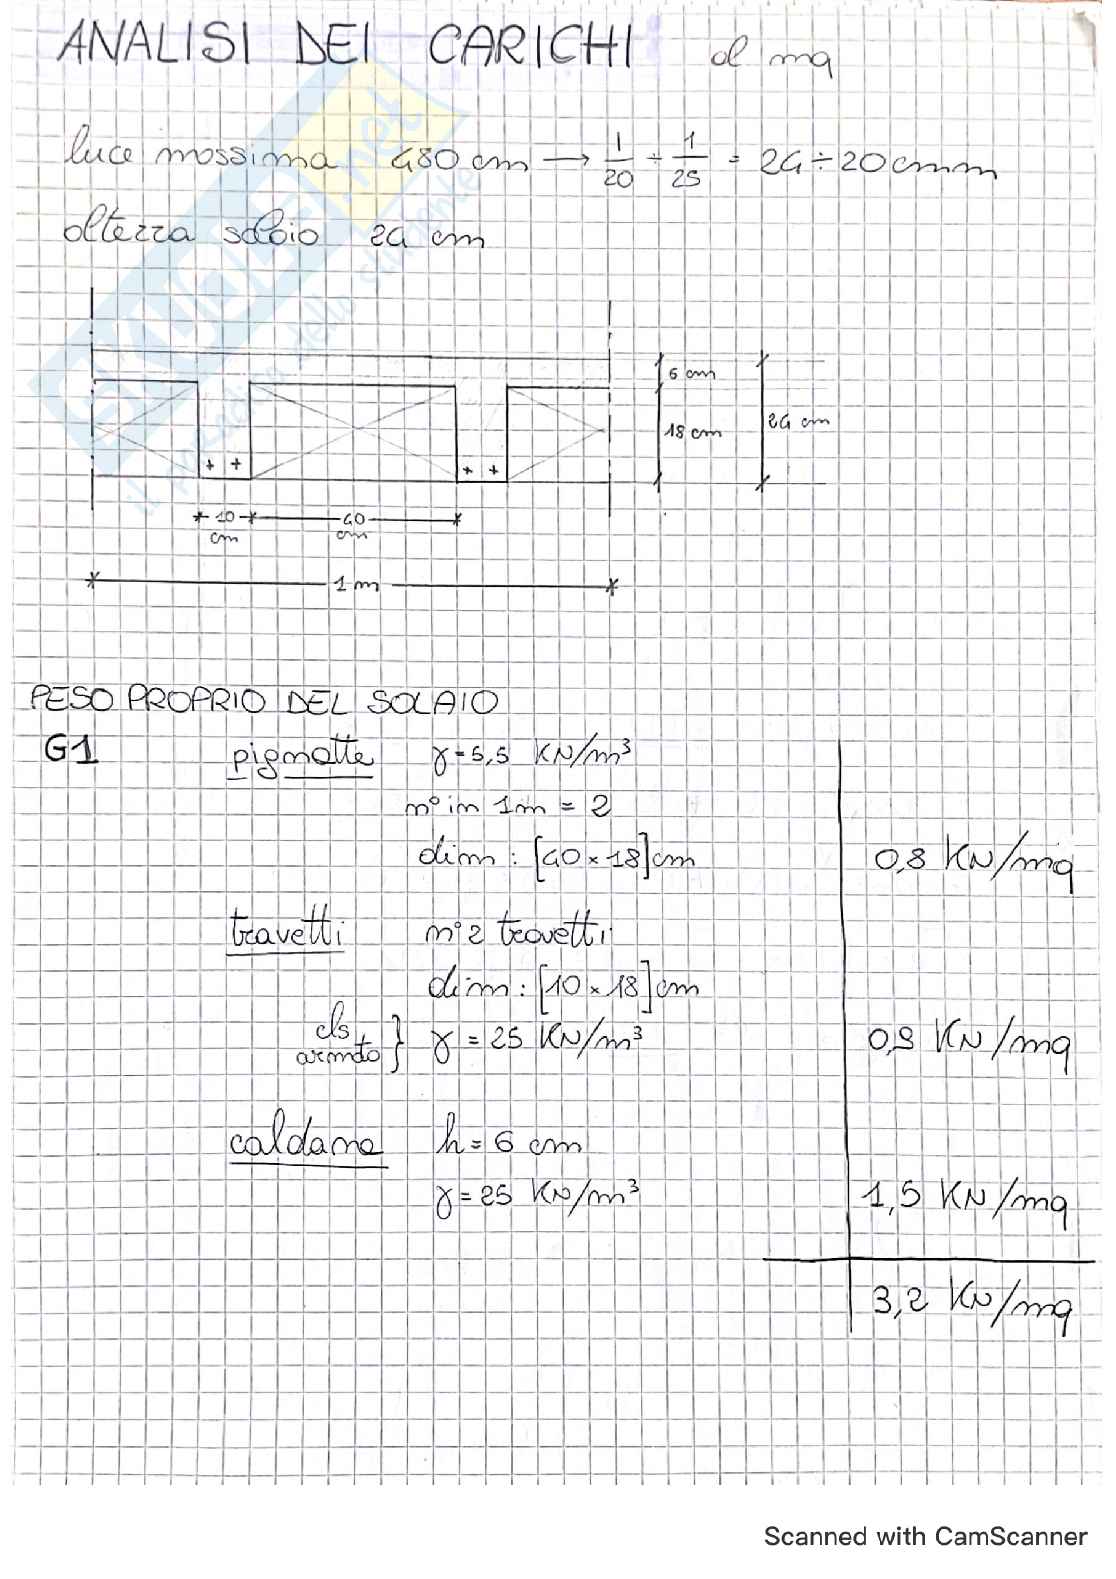 ANALISI DEI CARICHI al mq
luce massima 480 cm → 1/20 ÷ 1/25 = 24÷20 cmm
altezza solaio 24 cm
6 cm
18 cm
24 cm
+ +
+ +
10 cm
40 cm
1 m
PESO PROPRIO DEL SOLAIO
G1 pignatte γ=5,5 KN/m³
n° in 1m = 2
dim: [40×18]cm 0,8 KN/mq
travetti n°2 travetti
dim: [10×18]cm
cls armato } γ = 25 KN/m³ 0,9 KN/mq
caldana h=6 cm
γ=25 KN/m³ 1,5 KN/mq
3,2 KN/mq
SKUOLA.net
il paradiso dello studente
Scanned with CamScanner